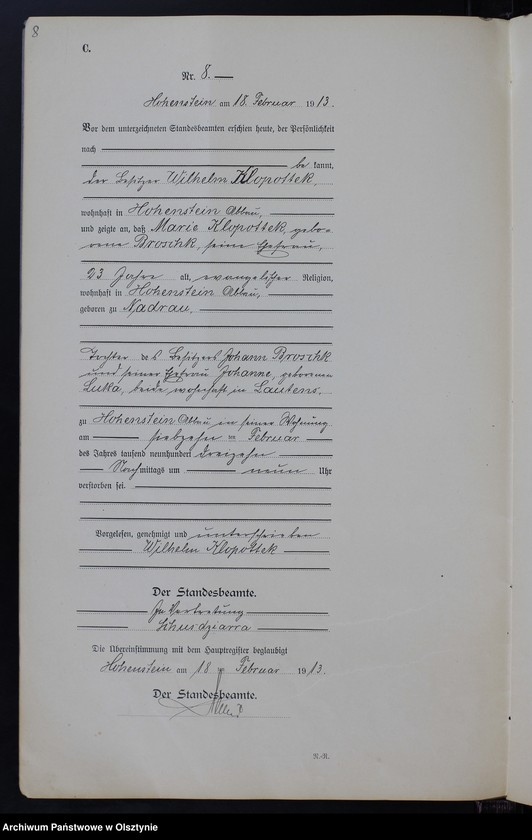 8
C.
Nr. 8.
Hohenstein am 18. Februar 1913.
Vor dem unterzeichneten Standesbeamten erschien heute, der Persönlichkeit
nach
be kannt,
der Besitzer Wilhelm Klopottek,
wohnhaft in Hohenstein Abbau,
und zeigte an, daß Marie Klopottek, gebo-
rene Broschk, seine Ehefrau,
23 Jahre alt, evangelischer Religion,
wohnhaft in Hohenstein Abbau,
geboren zu Nadrau,
Tochter des Besitzers Johann Broschk
und seiner Ehefrau Johanne, geborenen
Luka, beide wohnhaft in Lautens,
zu Hohenstein Abbau in seiner Wohnung
am siebzehn ten Februar
des Jahres tausend neunhundert dreizehn
Nachmittags um neun Uhr
verstorben sei.
Vorgelesen, genehmigt und unterschrieben
Wilhelm Klopottek
Der Standesbeamte.
In Vertretung
Schusdziarra
Die Übereinstimmung mit dem Hauptregister beglaubigt
Hohenstein am 18 ten Februar 1913.
Der Standesbeamte.
N.-R.
Archiwum Państwowe w Olsztynie